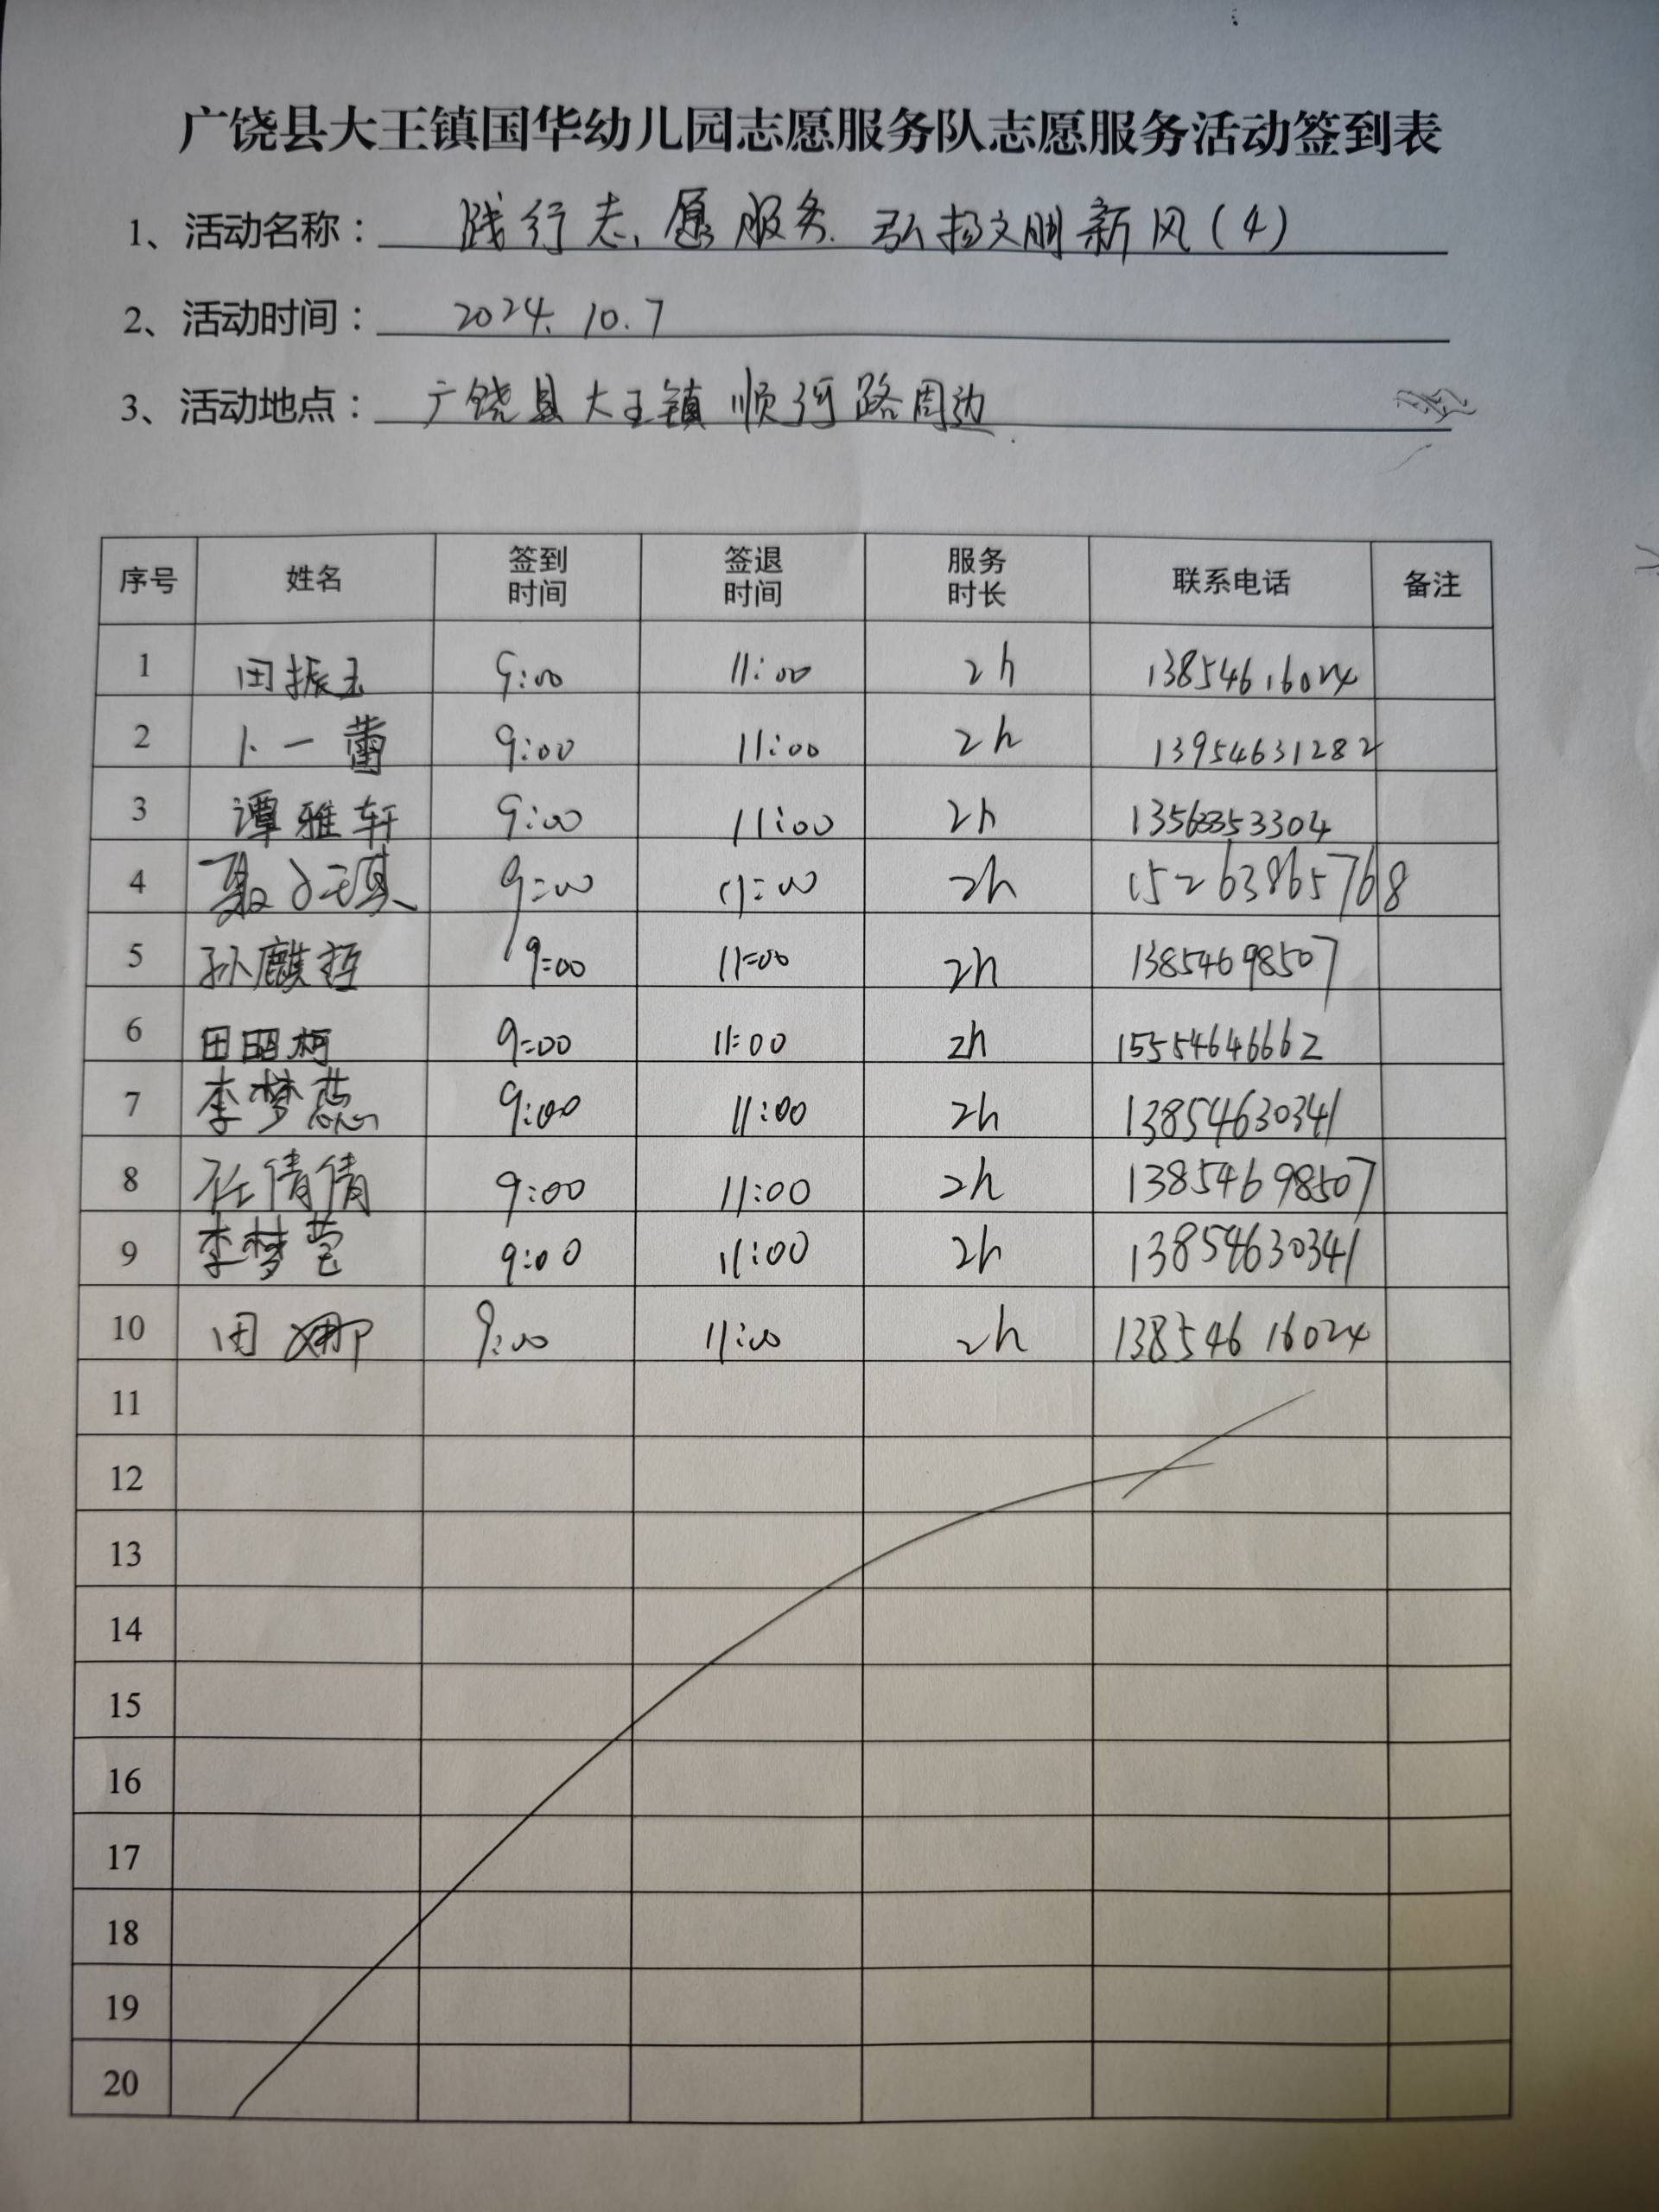 广饶县大王镇国华幼儿园志愿服务队志愿服务活动签到表
1、活动名称：践行志愿服务.弘扬文明新风(4)
2、活动时间：2024.10.7
3、活动地点：广饶县大王镇顺河路周边.
序号 姓名 签到时间 签退时间 服务时长 联系电话 备注
1 田振玉 9:00 11:00 2h 13854616024
2 卜一蕾 9:00 11:00 2h 13954631282
3 谭雅轩 9:00 11:00 2h 13563353304
4 聂 9:00 11:00 2h 15263865768
5 孙麒哲 9:00 11:00 2h 13854698507
6 田昭柯 9:00 11:00 2h 15554646662
7 李梦蕊 9:00 11:00 2h 13854630341
8 任倩倩 9:00 11:00 2h 13854698507
9 李梦莹 9:00 11:00 2h 13854630341
10 田娜 9:00 11:00 2h 13854616024
11
12
13
14
15
16
17
18
19
20